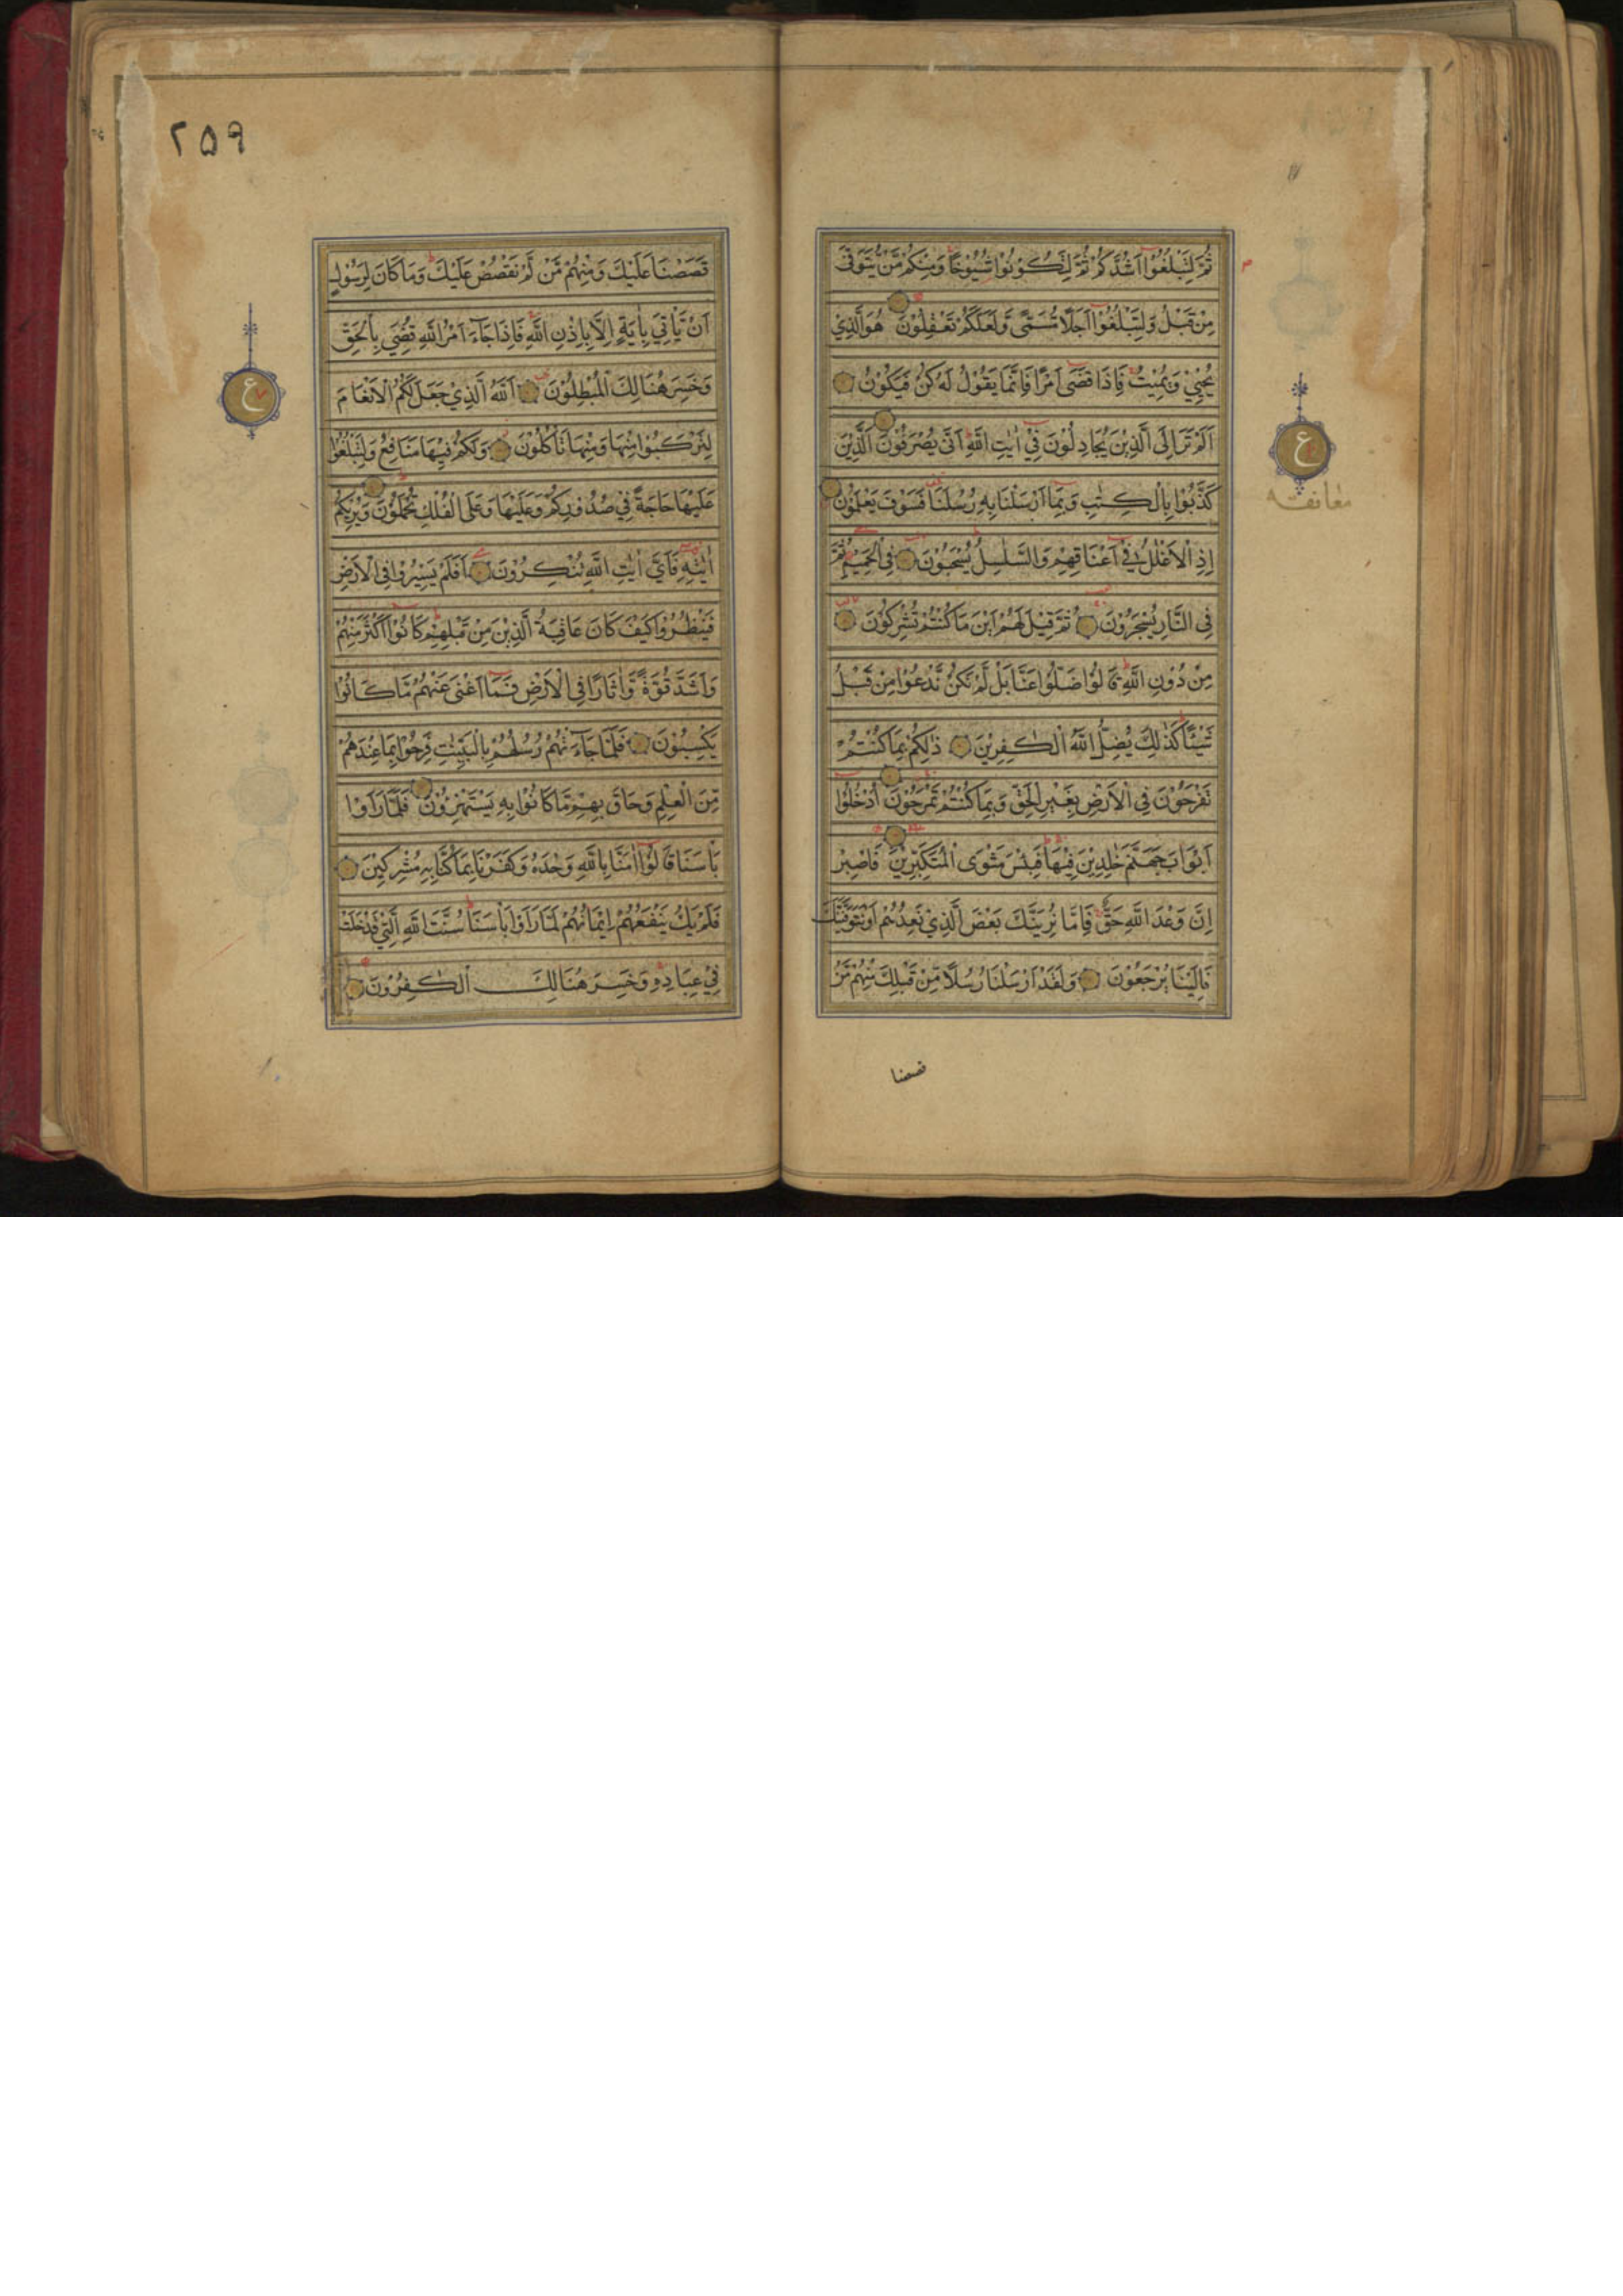 ثُمَّ لِتَبْلُغُوْٓا اَشُدَّكُمْ ثُمَّ لِتَكُوْنُوْا شُيُوْخًا وَمِنْكُمْ مَّنْ يُّتَوَفّٰى
مِنْ قَبْلُ وَلِتَبْلُغُوْٓا اَجَلًا مُّسَمًّى وَّلَعَلَّكُمْ تَعْقِلُوْنَ هُوَ الَّذِيْ
يُحْيِيْ وَيُمِيْتُ فَاِذَا قَضٰٓى اَمْرًا فَاِنَّمَا يَقُوْلُ لَهٗ كُنْ فَيَكُوْنُ
اَلَمْ تَرَ اِلَى الَّذِيْنَ يُجَادِلُوْنَ فِيْٓ اٰيٰتِ اللّٰهِ اَنّٰى يُصْرَفُوْنَ الَّذِيْنَ
كَذَّبُوْا بِالْكِتٰبِ وَبِمَآ اَرْسَلْنَا بِهٖ رُسُلَنَا فَسَوْفَ يَعْلَمُوْنَ
اِذِ الْاَغْلٰلُ فِيْٓ اَعْنَاقِهِمْ وَالسَّلٰسِلُ يُسْحَبُوْنَ فِى الْحَمِيْمِ ثُمَّ
فِى النَّارِ يُسْجَرُوْنَ ثُمَّ قِيْلَ لَهُمْ اَيْنَ مَا كُنْتُمْ تُشْرِكُوْنَ
مِنْ دُوْنِ اللّٰهِ قَالُوْا ضَلُّوْا عَنَّا بَلْ لَّمْ نَكُنْ نَّدْعُوْا مِنْ قَبْلُ
شَيْئًا كَذٰلِكَ يُضِلُّ اللّٰهُ الْكٰفِرِيْنَ ذٰلِكُمْ بِمَا كُنْتُمْ
تَفْرَحُوْنَ فِى الْاَرْضِ بِغَيْرِ الْحَقِّ وَبِمَا كُنْتُمْ تَمْرَحُوْنَ اُدْخُلُوْٓا
اَبْوَابَ جَهَنَّمَ خٰلِدِيْنَ فِيْهَا فَبِئْسَ مَثْوَى الْمُتَكَبِّرِيْنَ فَاصْبِرْ
اِنَّ وَعْدَ اللّٰهِ حَقٌّ فَاِمَّا نُرِيَنَّكَ بَعْضَ الَّذِيْ نَعِدُهُمْ اَوْ نَتَوَفَّيَنَّكَ
فَاِلَيْنَا يُرْجَعُوْنَ وَلَقَدْ اَرْسَلْنَا رُسُلًا مِّنْ قَبْلِكَ مِنْهُمْ مَّنْ
قصصنا
ع
معانقه
٢٥٩
قَصَصْنَا عَلَيْكَ وَمِنْهُمْ مَّنْ لَّمْ نَقْصُصْ عَلَيْكَ وَمَا كَانَ لِرَسُوْلٍ
اَنْ يَّاْتِيَ بِاٰيَةٍ اِلَّا بِاِذْنِ اللّٰهِ فَاِذَا جَآءَ اَمْرُ اللّٰهِ قُضِيَ بِالْحَقِّ
وَخَسِرَ هُنَالِكَ الْمُبْطِلُوْنَ اَللّٰهُ الَّذِيْ جَعَلَ لَكُمُ الْاَنْعَامَ
لِتَرْكَبُوْا مِنْهَا وَمِنْهَا تَاْكُلُوْنَ وَلَكُمْ فِيْهَا مَنَافِعُ وَلِتَبْلُغُوْا
عَلَيْهَا حَاجَةً فِيْ صُدُوْرِكُمْ وَعَلَيْهَا وَعَلَى الْفُلْكِ تُحْمَلُوْنَ وَيُرِيْكُمْ
اٰيٰتِهٖ فَاَيَّ اٰيٰتِ اللّٰهِ تُنْكِرُوْنَ اَفَلَمْ يَسِيْرُوْا فِى الْاَرْضِ
فَيَنْظُرُوْا كَيْفَ كَانَ عَاقِبَةُ الَّذِيْنَ مِنْ قَبْلِهِمْ كَانُوْٓا اَكْثَرَ مِنْهُمْ
وَاَشَدَّ قُوَّةً وَّاٰثَارًا فِى الْاَرْضِ فَمَآ اَغْنٰى عَنْهُمْ مَّا كَانُوْا
يَكْسِبُوْنَ فَلَمَّا جَآءَتْهُمْ رُسُلُهُمْ بِالْبَيِّنٰتِ فَرِحُوْا بِمَا عِنْدَهُمْ
مِّنَ الْعِلْمِ وَحَاقَ بِهِمْ مَّا كَانُوْا بِهٖ يَسْتَهْزِءُوْنَ فَلَمَّا رَاَوْا
بَاْسَنَا قَالُوْٓا اٰمَنَّا بِاللّٰهِ وَحْدَهٗ وَكَفَرْنَا بِمَا كُنَّا بِهٖ مُشْرِكِيْنَ
فَلَمْ يَكُ يَنْفَعُهُمْ اِيْمَانُهُمْ لَمَّا رَاَوْا بَاْسَنَا سُنَّتَ اللّٰهِ الَّتِيْ قَدْ خَلَتْ
فِيْ عِبَادِهٖ وَخَسِرَ هُنَالِكَ الْكٰفِرُوْنَ
ع